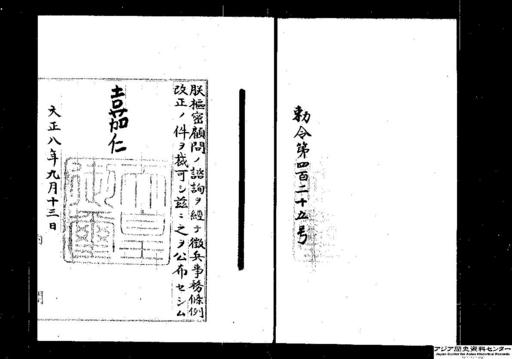 勅令第四百二十五号
朕樞密顧問ノ諮詢ヲ經テ徴兵事務條例
改正ノ件ヲ裁可シ茲ニ之ヲ公布セシム
嘉仁
天皇御璽
大正八年九月十三日
内
閣
アジア歴史資料センター
Japan Center for Asian Historical Records